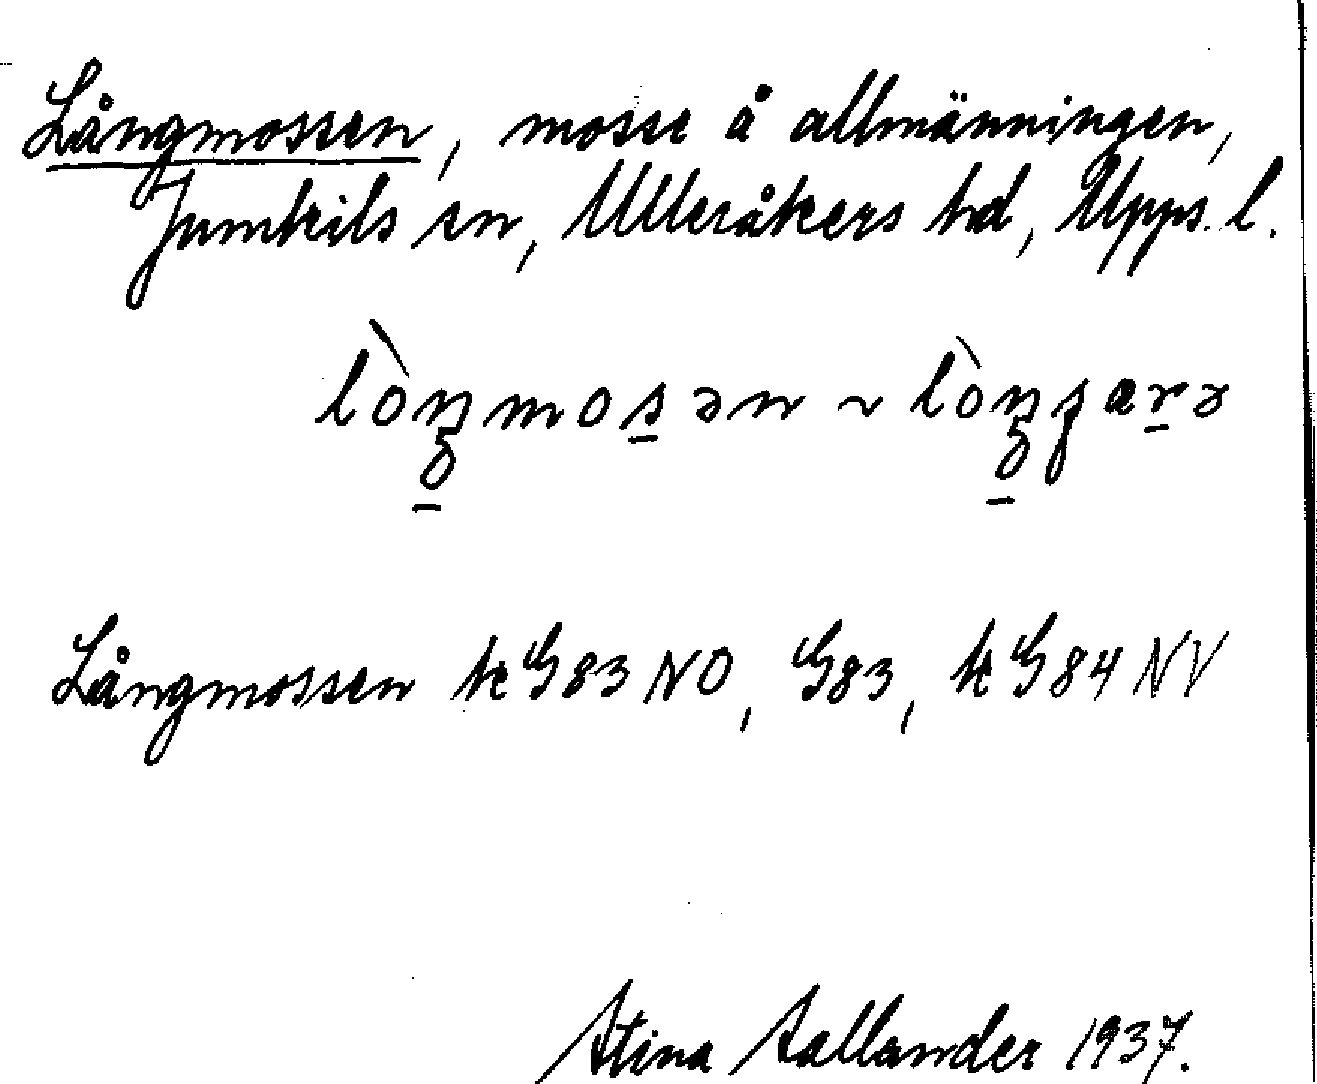 Långmossen, mosse å allmänningen,
Jumkils sn, Ulleråkers hd, Upps. l.
lòŋmosən ~ lòŋʃærə
Långmossen k G83 NO, G83, k G84 NV
Stina Sallander 1937.